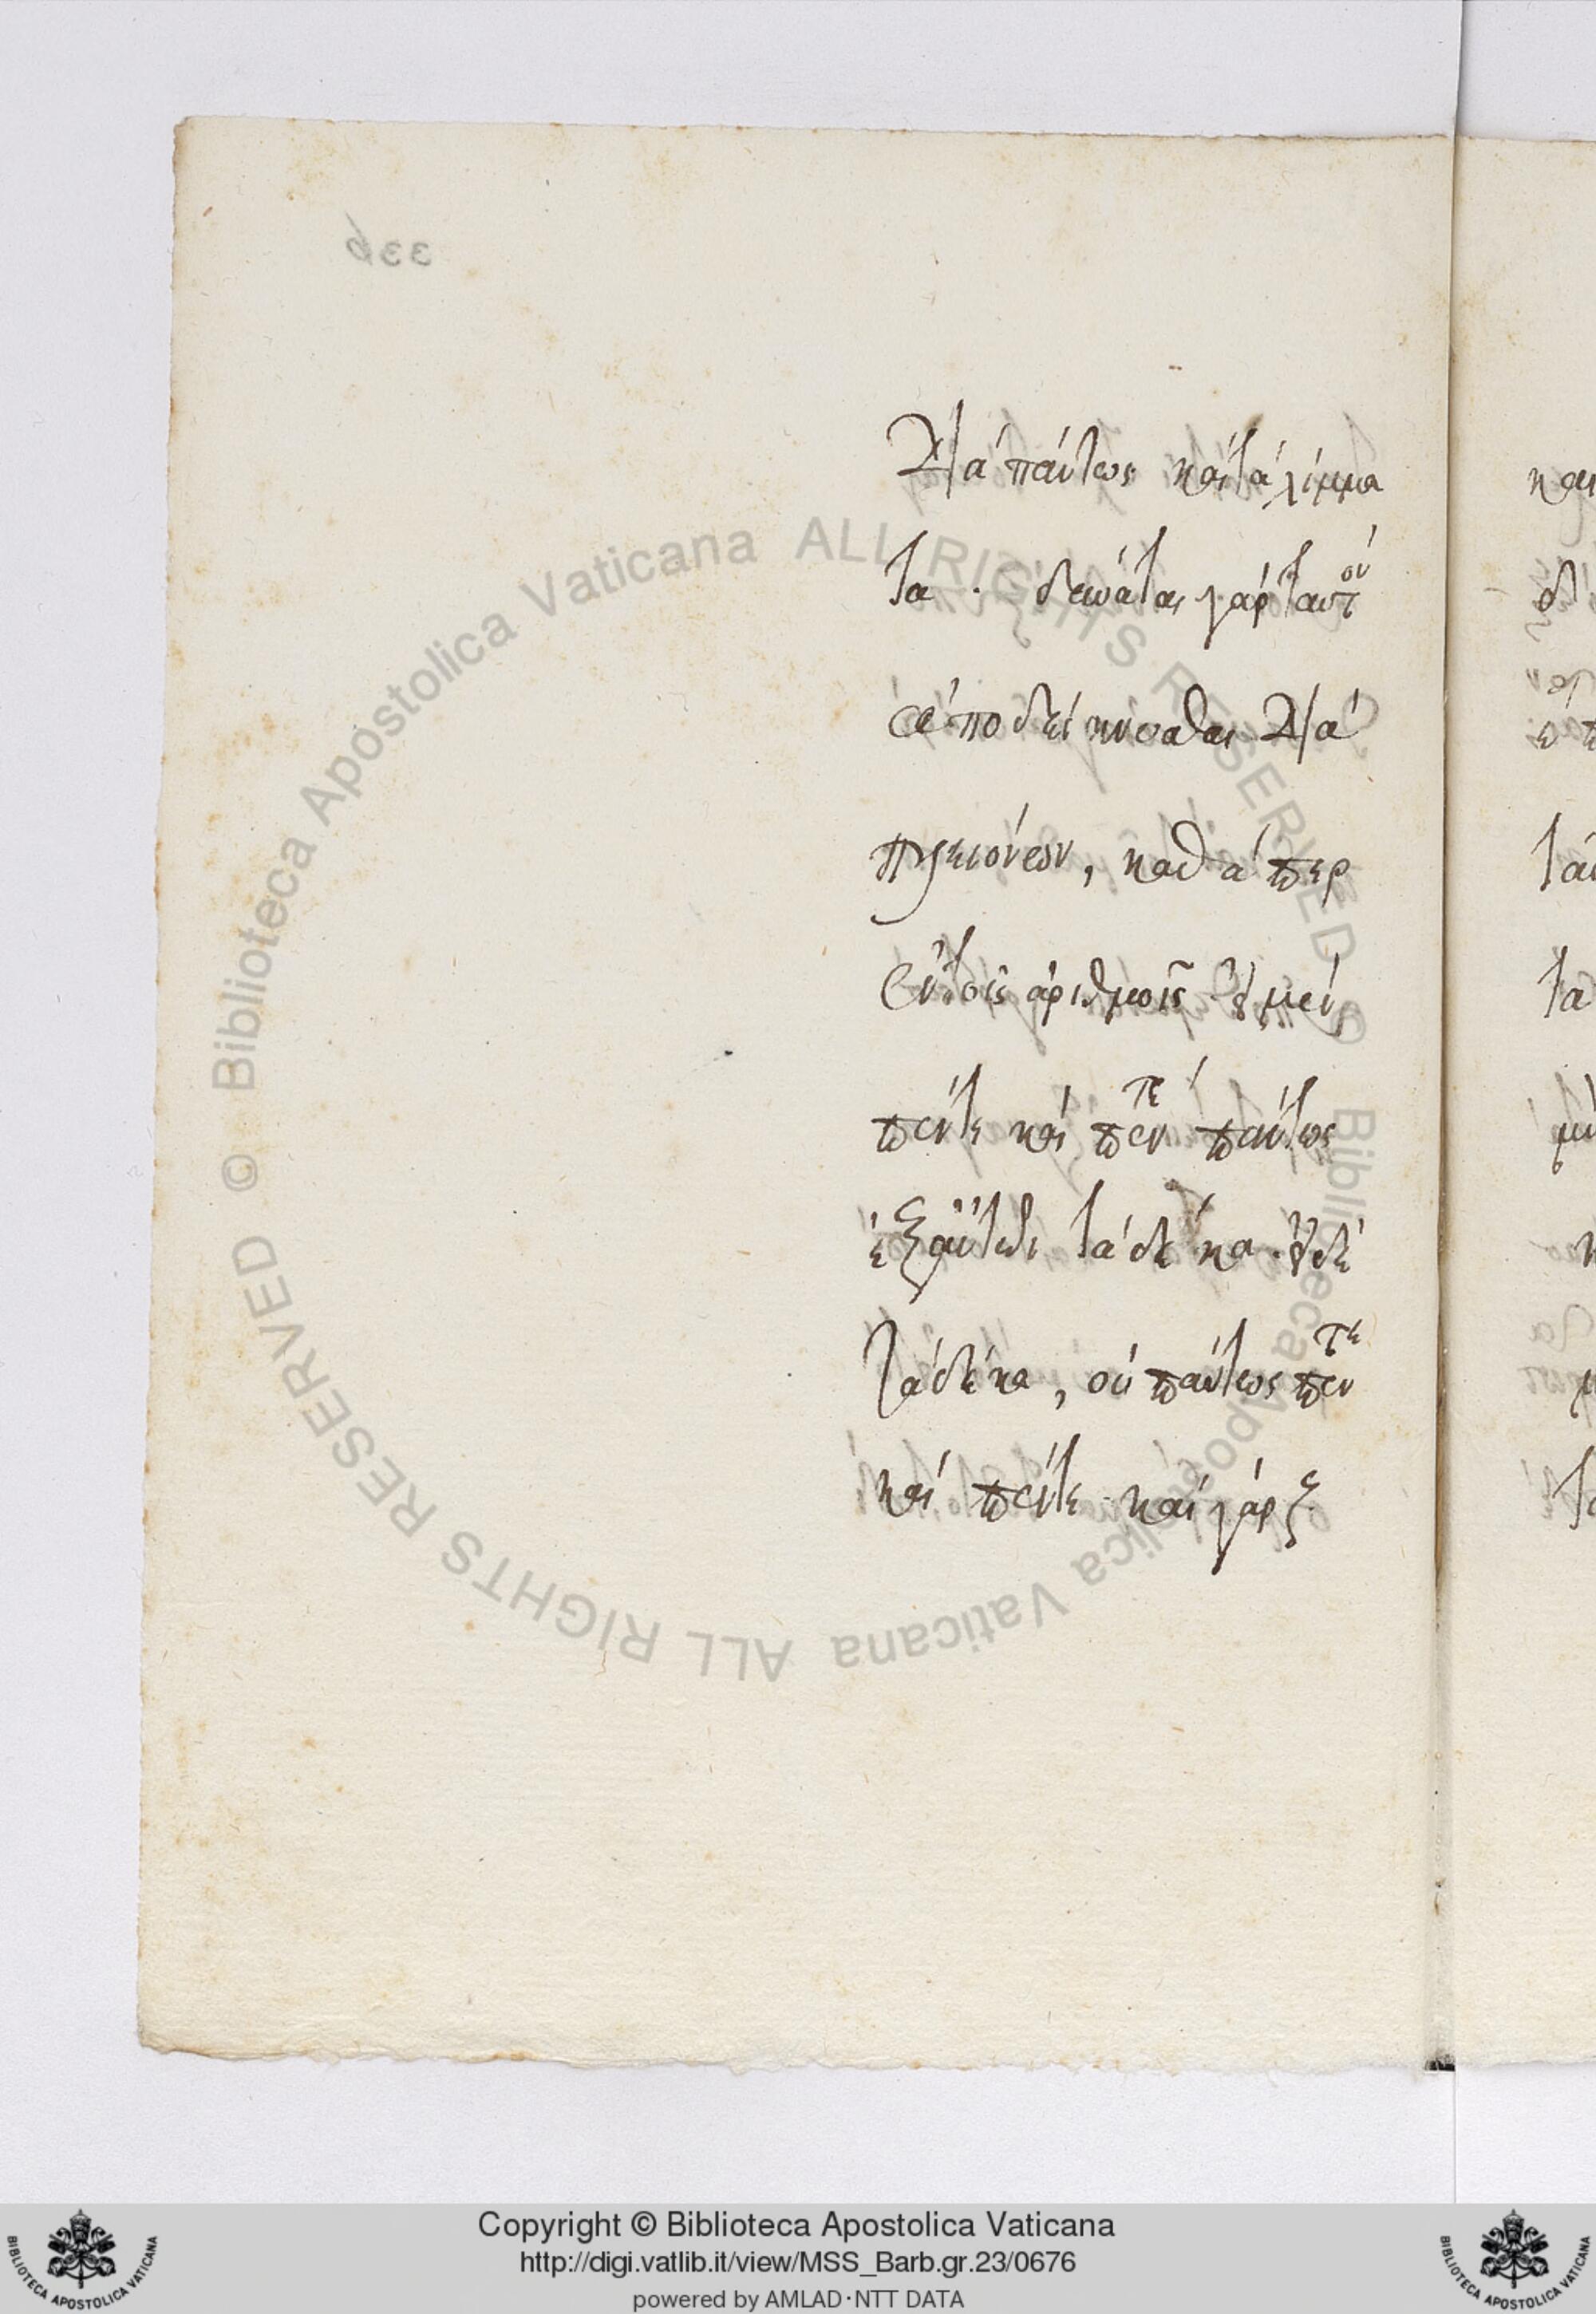 διὰ πάντως καὶ τὰ λήμμα
τα. δυνάται γὰρ ταυτὸν
ἀποδείκνυσθαι διὰ
πλειόνων, καθάπερ
ἐν τοῖς ἀριθμοῖς οὗ μὲν
πέντε καὶ πέντε πάντως
ἐξ αὐτῶν τὰ δέκα. οὗ δὲ
τὰ δέκα, οὐ πάντως πέντε
καὶ πέντε. καὶ γὰρ ξ
Biblioteca Apostolica Vaticana ALL RIGHTS RESERVED © Biblioteca Apostolica Vaticana ALL RIGHTS RESERVED ©
Copyright © Biblioteca Apostolica Vaticana
http://digi.vatlib.it/view/MSS_Barb.gr.23/0676
powered by AMLAD·NTT DATA
BIBLIOTECA APOSTOLICA VATICANA
BIBLIOTECA APOSTOLICA VATICANA